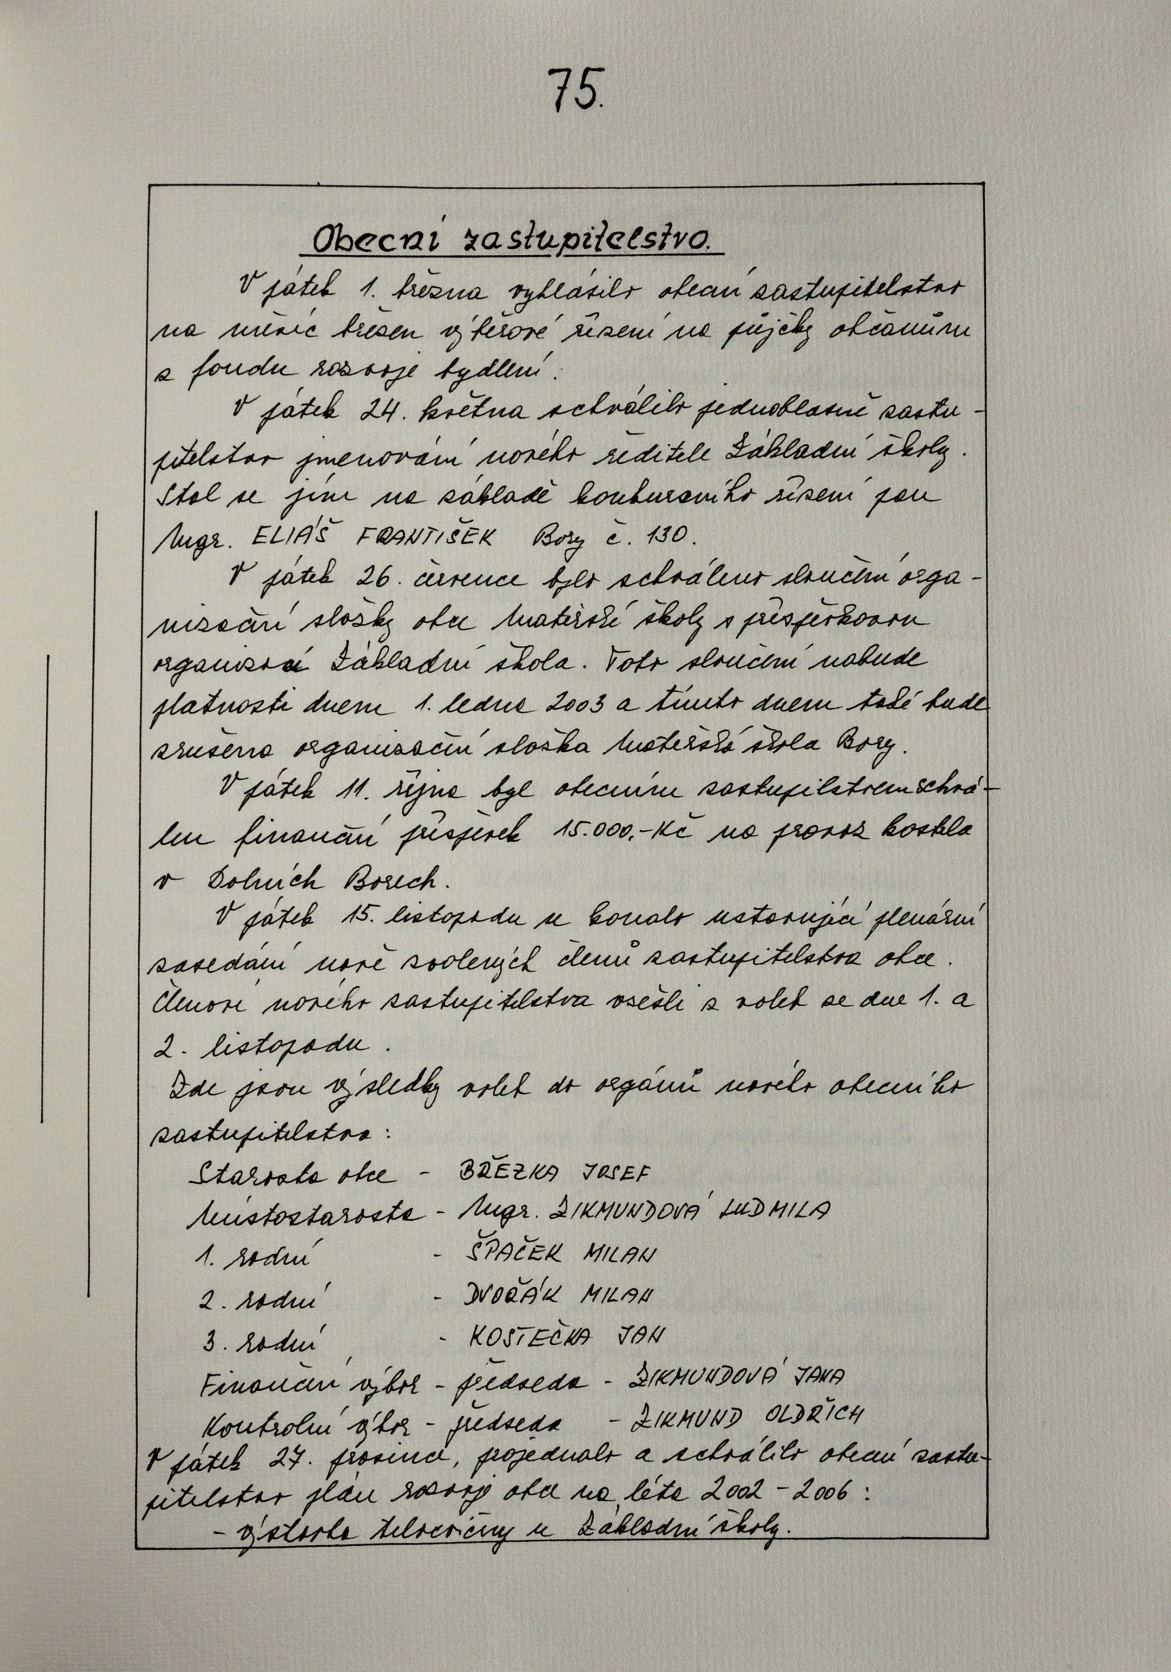 75.
Obecní zastupitelstvo.
V pátek 1. března vyhlásilo obecní zastupitelstvo
na měsíc březen výběrové řízení na půjčky občanům
z fondu rozvoje bydlení.
V pátek 24. května schválilo jednohlasně zastu-
pitelstvo jmenování nového ředitele Základní školy.
Stal se jím na základě konkursního řízení pan
Mgr. ELIÁŠ FRANTIŠEK Bory č. 130.
V pátek 26. července bylo schváleno sloučení orga-
nizační složky obce Mateřské školy s příspěvkovou
organizací Základní škola. Toto sloučení nabude
platnosti dnem 1. ledna 2003 a tímto dnem také bude
zrušena organizační složka Mateřská škola Bory.
V pátek 11. října byl obecním zastupilstvem schvá-
len finanční příspěvek 15.000,-Kč na provoz kostela
v Dolních Borech.
V pátek 15. listopadu se konalo ustavující plenární
zasedání nově zvolených členů zastupitelstva obce.
Členové nového zastupitelstva vzešli z voleb ze dne 1. a
2. listopadu.
Zde jsou výsledky voleb do orgánů nového obecního
zastupitelstva:
Starosta obce - BŘEZKA JOSEF
Místostarosta - Mgr. ZIKMUNDOVÁ LUDMILA
1. radní - ŠPAČEK MILAN
2. radní - DVOŘÁK MILAN
3. radní - KOSTEČKA JAN
Finanční výbor - předseda - ZIKMUNDOVÁ JANA
Kontrolní výbor - předseda - ZIKMUND OLDŘICH
V pátek 27. prosince, projednalo a schválilo obecní zastu-
pitelstvo plán rozvoje obce na léta 2002 - 2006 :
- výstavba tělocvičny u Základní školy.